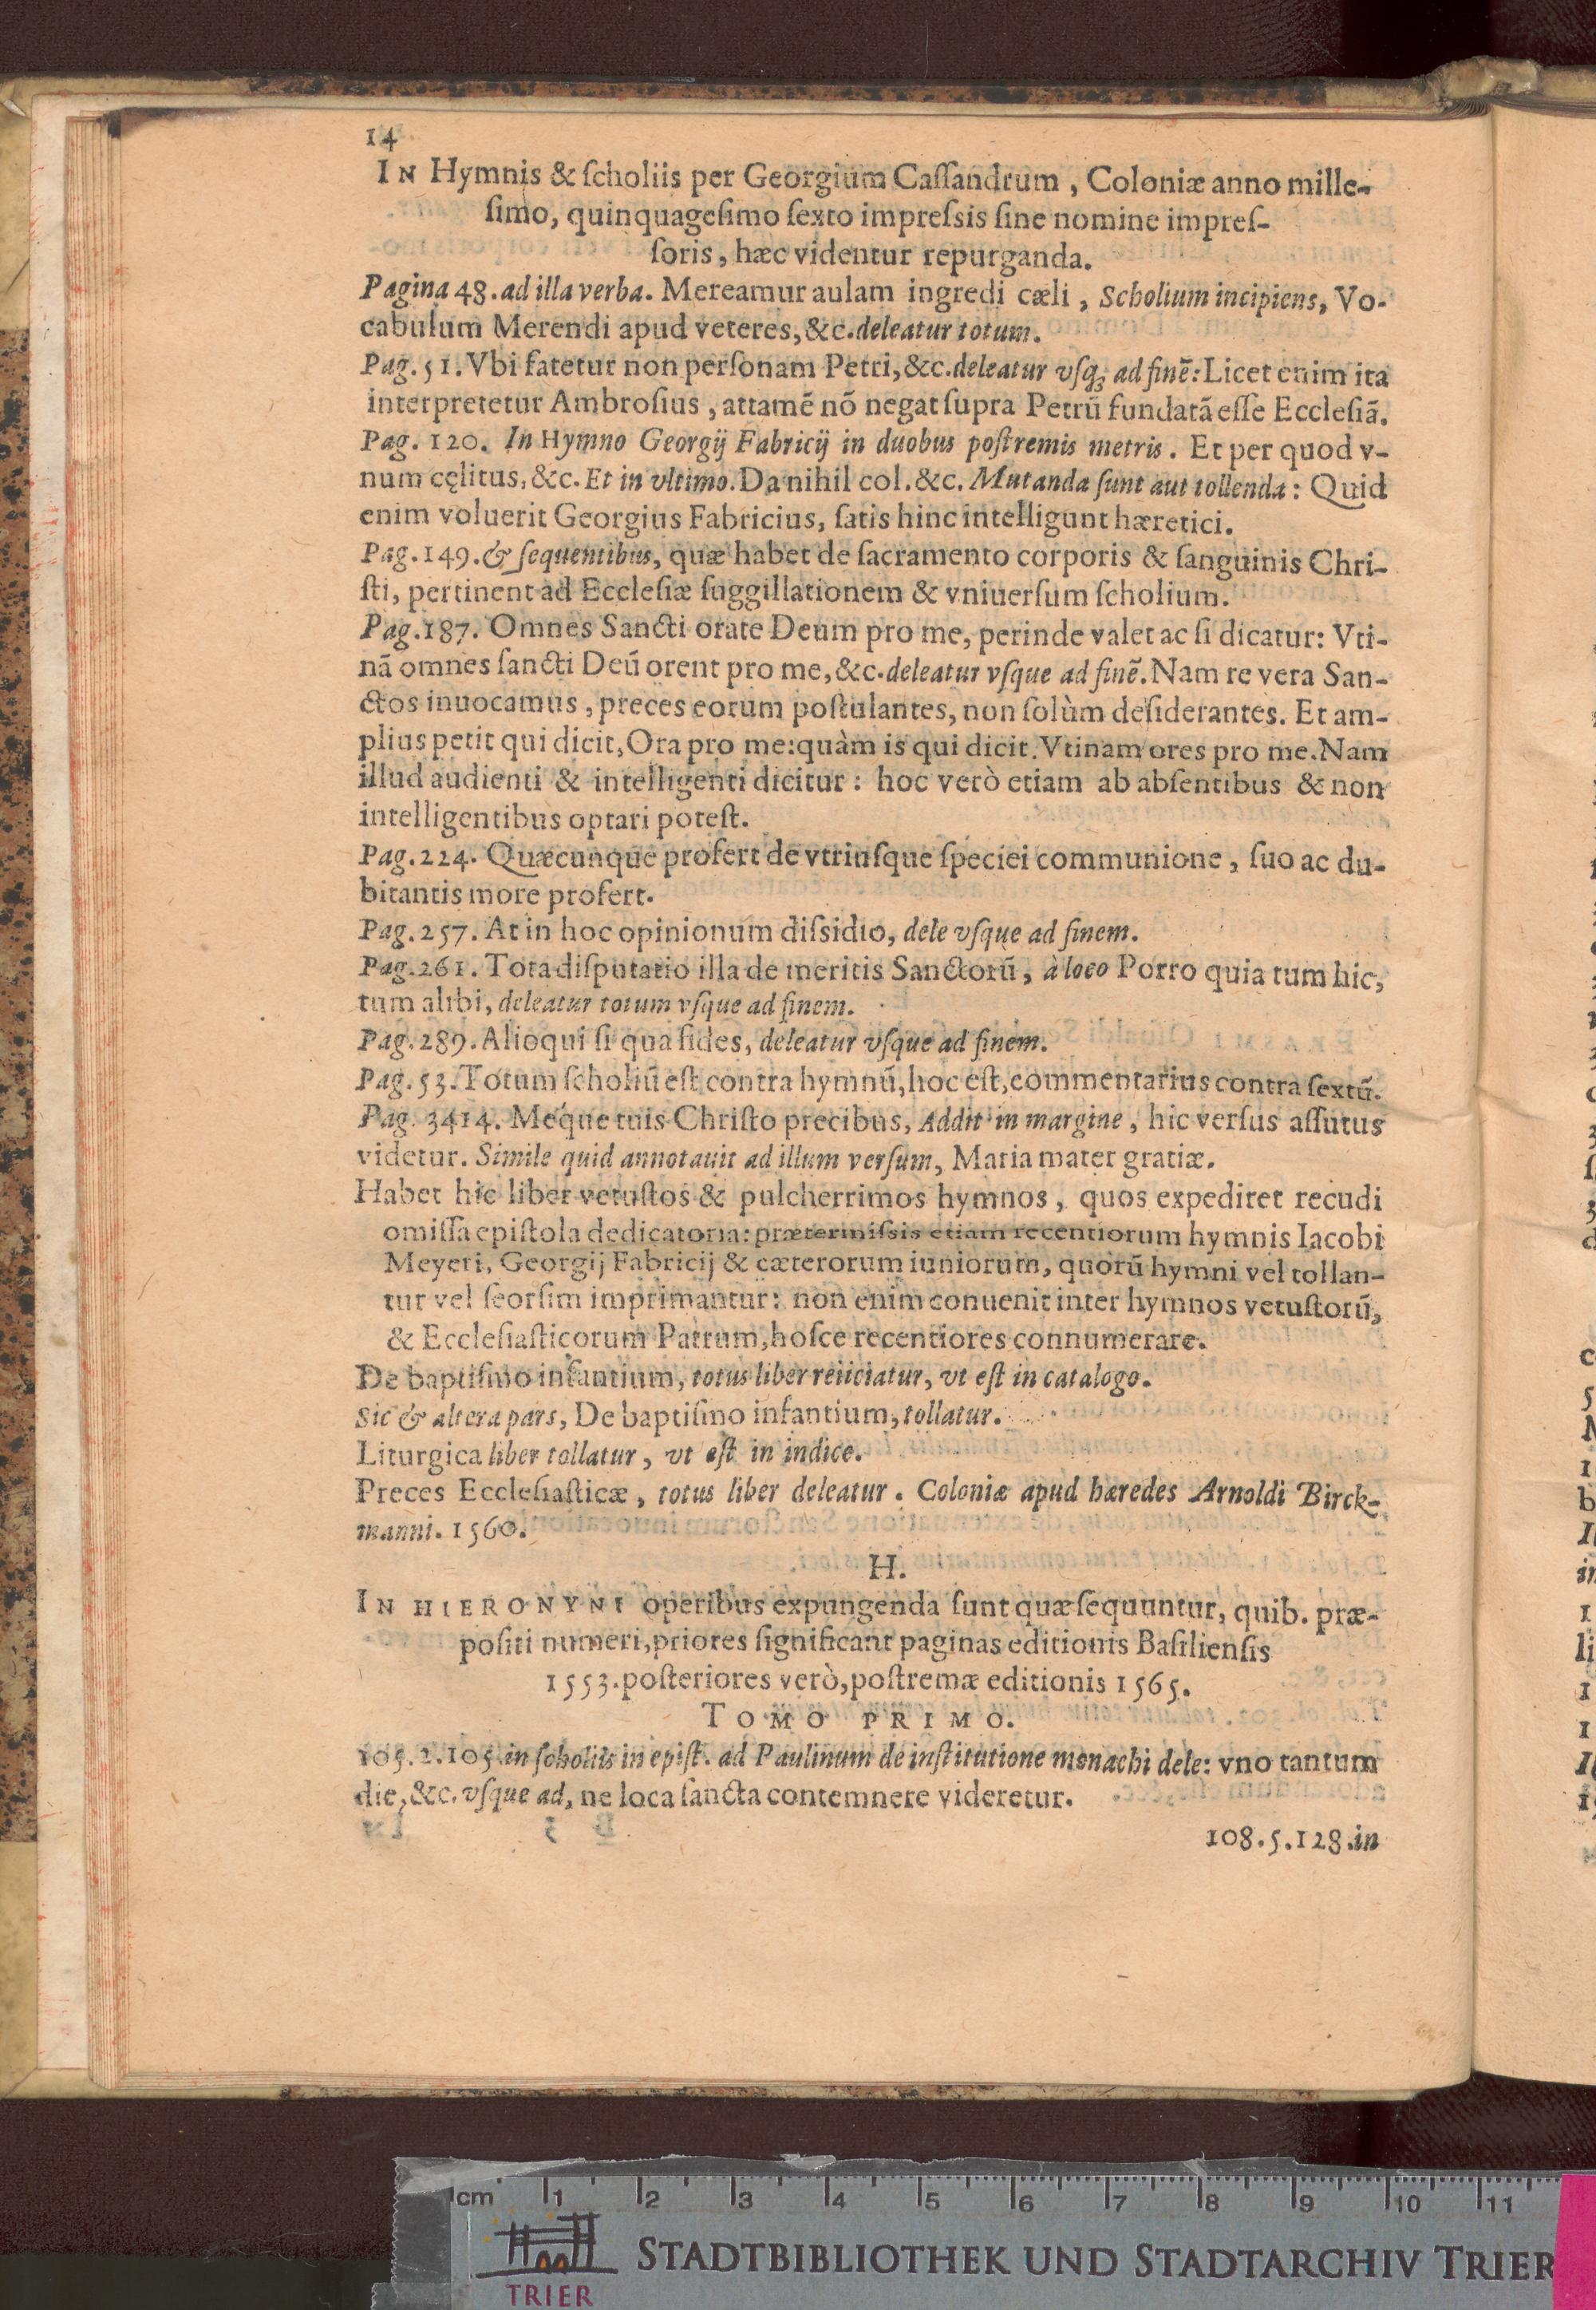 14
IN Hymnis & ſcholiis per Georgium Caſſandrum, Coloniæ anno mille-
ſimo, quinquageſimo ſexto impreſsis ſine nomine impreſ-
ſoris, hæc videntur repurganda.
Pagina 48. ad illa verba. Mereamur aulam ingredi cæli, Scholium incipiens, Vo-
cabulum Merendi apud veteres, &c. deleatur totum.
Pag. 51. Vbi fatetur non perſonam Petri, &c. deleatur vſq; ad finẽ: Licet enim ita
interpretetur Ambroſius, attamẽ nõ negat ſupra Petrũ fundatã eſſe Eccleſiã.
Pag. 120. In Hymno Georgij Fabricij in duobus poſtremis metris. Et per quod v-
num cęlitus, &c. Et in vltimo. Da nihil col. &c. Mutanda ſunt aut tollenda: Quid
enim voluerit Georgius Fabricius, ſatis hinc intelligunt hæretici.
Pag. 149. & ſequentibus, quæ habet de ſacramento corporis & ſanguinis Chri-
ſti, pertinent ad Eccleſiæ ſuggillationem & vniuerſum ſcholium.
Pag. 187. Omnes Sancti orate Deum pro me, perinde valet ac ſi dicatur: Vti-
nã omnes ſancti Deũ orent pro me, &c. deleatur vſque ad finẽ. Nam re vera San-
ctos inuocamus, preces eorum poſtulantes, non ſolùm deſiderantes. Et am-
plius petit qui dicit, Ora pro me: quàm is qui dicit. Vtinam ores pro me. Nam
illud audienti & intelligenti dicitur: hoc verò etiam ab abſentibus & non
intelligentibus optari poteſt.
Pag. 224. Quæcunque profert de vtriuſque ſpeciei communione, ſuo ac du-
bitantis more profert.
Pag. 257. At in hoc opinionum diſsidio, dele vſque ad finem.
Pag. 261. Tota diſputatio illa de meritis Sanctorũ, à loco Porro quia tum hic,
tum alibi, deleatur totum vſque ad finem.
Pag. 289. Alioqui ſi qua fides, deleatur vſque ad finem.
Pag. 53. Totum ſcholiũ eſt contra hymnũ, hoc eſt, commentarius contra ſextũ.
Pag. 3414. Méque tuis Chriſto precibus, Addit in margine, hic verſus aſſutus
videtur. Simile quid annotauit ad illum verſum, Maria mater gratiæ.
Habet hic liber vetuſtos & pulcherrimos hymnos, quos expediret recudi
omiſſa epiſtola dedicatoria: prætermiſsis etiam recentiorum hymnis Iacobi
Meyeri, Georgij Fabricij & cæterorum iuniorum, quorũ hymni vel tollan-
tur vel ſeorſim imprimantur: non enim conuenit inter hymnos vetuſtorũ,
& Eccleſiaſticorum Patrum, hoſce recentiores connumerare.
De baptiſmo infantium, totus liber reiiciatur, vt eſt in catalogo.
Sic & altera pars, De baptiſmo infantium, tollatur.
Liturgica liber tollatur, vt eſt in indice.
Preces Eccleſiaſticæ, totus liber deleatur. Coloniæ apud hæredes Arnoldi Birck-
manni. 1560.
H.
IN HIERONYNI operibus expungenda ſunt quæ ſequuntur, quib. præ-
poſiti numeri, priores ſignificant paginas editionis Baſilienſis
1553. poſteriores verò, poſtremæ editionis 1565.
TOMO PRIMO.
105. 2. 105 in ſcholiis in epiſt. ad Paulinum de inſtitutione monachi dele: vno tantum
die, &c. vſque ad, ne loca ſancta contemnere videretur.
108. 5. 128. in
cm 1 2 3 4 5 6 7 8 9 10 11
TRIER
STADTBIBLIOTHEK UND STADTARCHIV TRIER